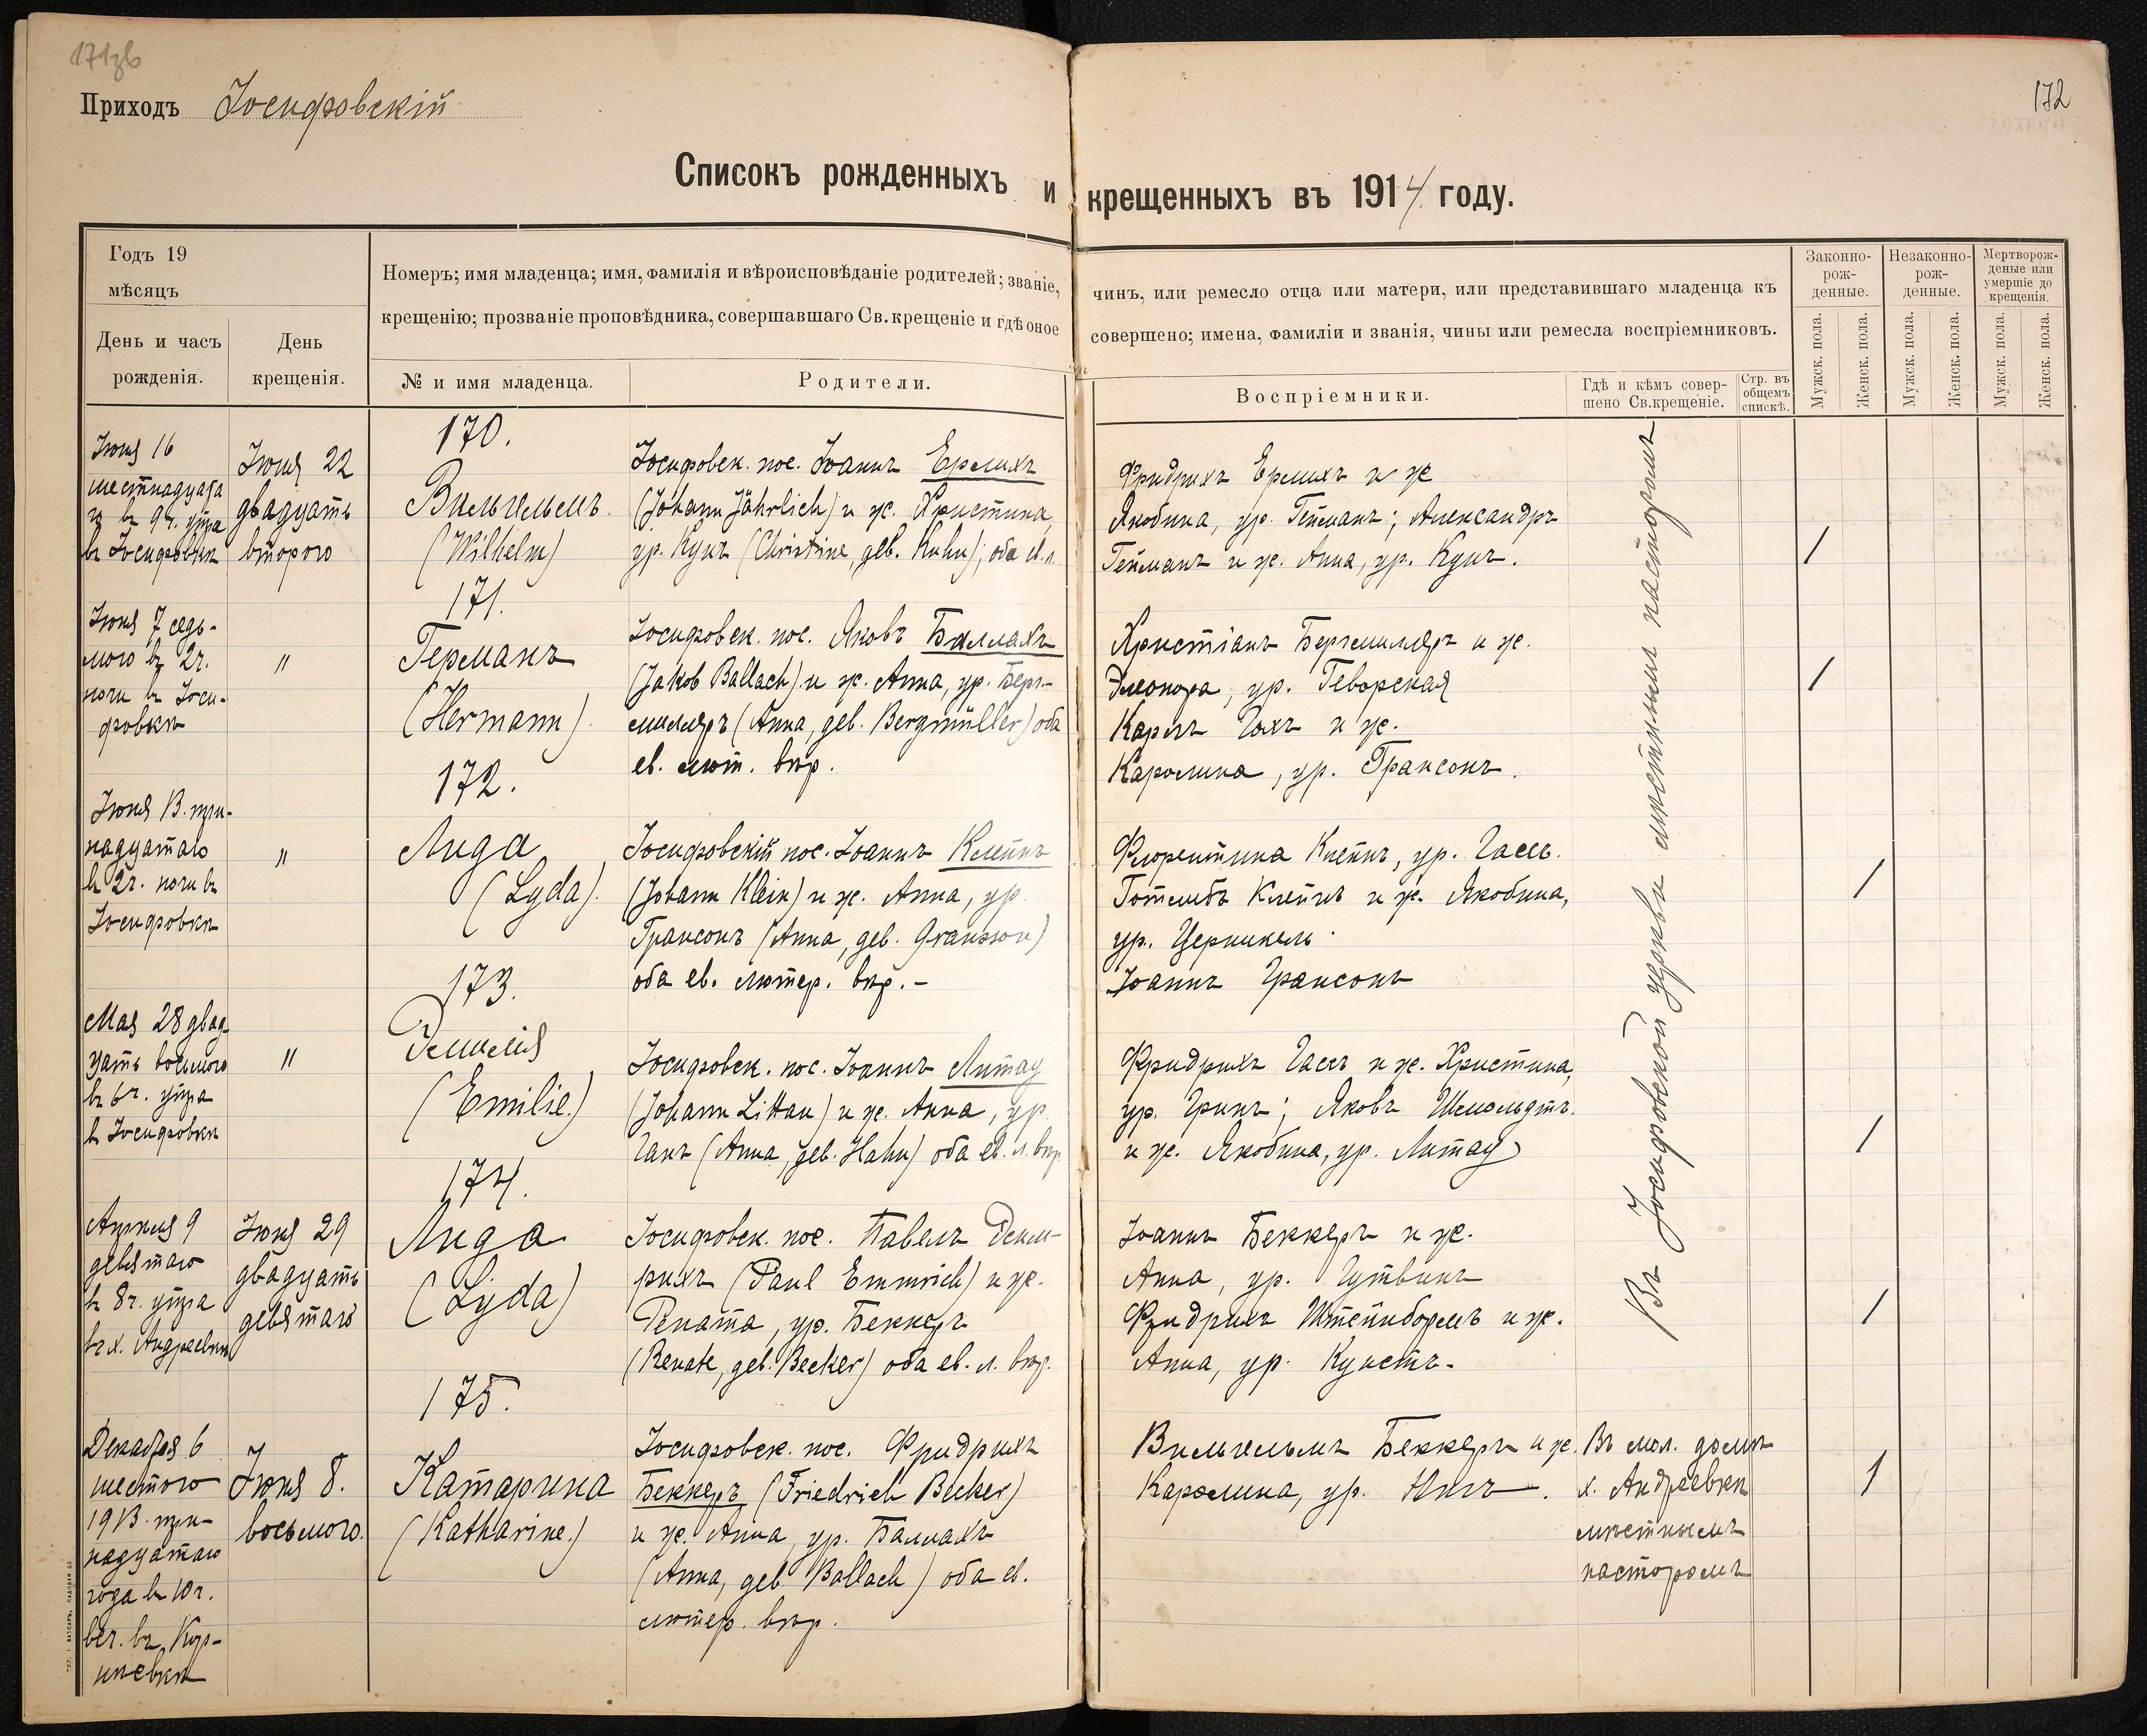 171зв
172
Приходъ Іосифовскій
Списокъ рожденныхъ и крещенныхъ въ 1914 году.
Годъ 19
мѣсяцъ
День и часъ
рожденія.
День
крещенія.
Номеръ; имя младенца; имя, фамилія и вѣроисповѣданіе родителей; званіе,
крещенію; прозваніе проповѣдника, совершавшаго Св. крещеніе и гдѣ оное
чинъ, или ремесло отца или матери, или представившаго младенца къ
совершено; имена, фамиліи и званія, чины или ремесла воспріемниковъ.
№ и имя младенца.
Родители.
Воспріемники.
Гдѣ и кѣмъ совер-
шено Св.крещеніе.
Стр. въ
общемъ
спискѣ.
Законно-
рож-
денные.
Незаконно-
рож-
денные.
Мертворож-
деные или
умершіе до
крещенія.
Мужск. пола.
Женск. пола.
Мужск. пола.
Женск. пола.
Мужск. пола.
Женск. пола.
Іюня 16
шестнадцата
го въ 9ч. утра
въ Іосифовкѣ
Іюня 22
двадцать
второго
170.
Вильгельмъ
(Wilhelm)
Іосифовск. пос. Іоаннъ Ерлихъ
(Johann Jährlich) и ж. Христина,
ур. Кунъ (Christine, geb. Kuhn); оба ев. л.
Фридрихъ Ерлихъ и ж
Якобина, ур. Гейманъ; Александръ
Гейманъ и ж. Анна, ур. Кунъ.
/
Іюня 7 седь-
мого въ 2ч.
ночи въ Іоси-
фовкѣ
"
171.
Германъ
(Hermann)
Іосифовск. пос. Яковъ Баллахъ
(Jakob Ballach) и ж. Анна, ур. Берг-
миллеръ (Anna, geb. Bergmüller) оба
ев. лют. вѣр.
Христіанъ Бергмиллеръ и ж.
Элеонора, ур. Геворская
Карлъ Гохъ и ж.
Каролина, ур. Грансонъ.
/
Іюня 13. три-
надцатаго
въ 2ч. ночи въ
Іосифовкѣ
"
172.
Лида
(Lyda).
Іосифовскій пос. Іоаннъ Клейнъ
(Johann Klein) и ж. Анна, ур.
Грансонъ (Anna, geb. Gransson)
оба ев. лютер. вѣр. -
Флорентина Клейнъ, ур. Гассъ.
Готлибъ Клейнъ и ж. Якобина,
ур. Церникель.
Іоаннъ Грансонъ
/
Мая 28 двад-
цать восьмого
въ 6ч. утра
въ Іосифовкѣ
"
173.
Эмилія
(Emilie.)
Іосифовск. пос. Іоаннъ Литау
(Johann Littau) и ж. Анна, ур.
Ганъ (Anna, geb. Hahn) оба ев. л. вѣр.
Фридрихъ Гассъ и ж. Христина,
ур. Гринъ; Яковъ Шмольдтъ.
и ж. Якобина, ур. Литау
/
Апрѣля 9
девятаго
въ 8ч. утра
въ х. Андреевкѣ
Іюня 29
двадцать
девятаго
174.
Лида
(Lyda)
Іосифовск. пос. Павелъ Эмм-
рихъ (Paul Emmrich) и ж.
Рената, ур. Беккеръ
(Renate, geb. Becker) оба ев. л. вѣр.
Іоаннъ Беккеръ и ж.
Анна, ур. Гутвинъ
Фридрихъ Штейнборнъ и ж.
Анна, ур. Кунстъ.
/
Въ Іосифовской церкви мѣстнымъ пасторомъ
Декабря 6
шестого
1913. три-
надцатаго
года въ 10ч.
веч. въ Кор-
нѣевкѣ
Іюня 8.
восьмого.
175.
Катарина
(Katharine.)
Іосифовск. пос. Фридрихъ
Беккеръ (Friedrich Becker)
и ж. Анна, ур. Баллахъ
(Anna, geb. Ballach) оба ев.
лютер. вѣр.
Вильгельмъ Беккеръ и ж.
Каролина, ур.
Въ мол. домѣ
х. Андреевки
мѣстнымъ
пасторомъ
1